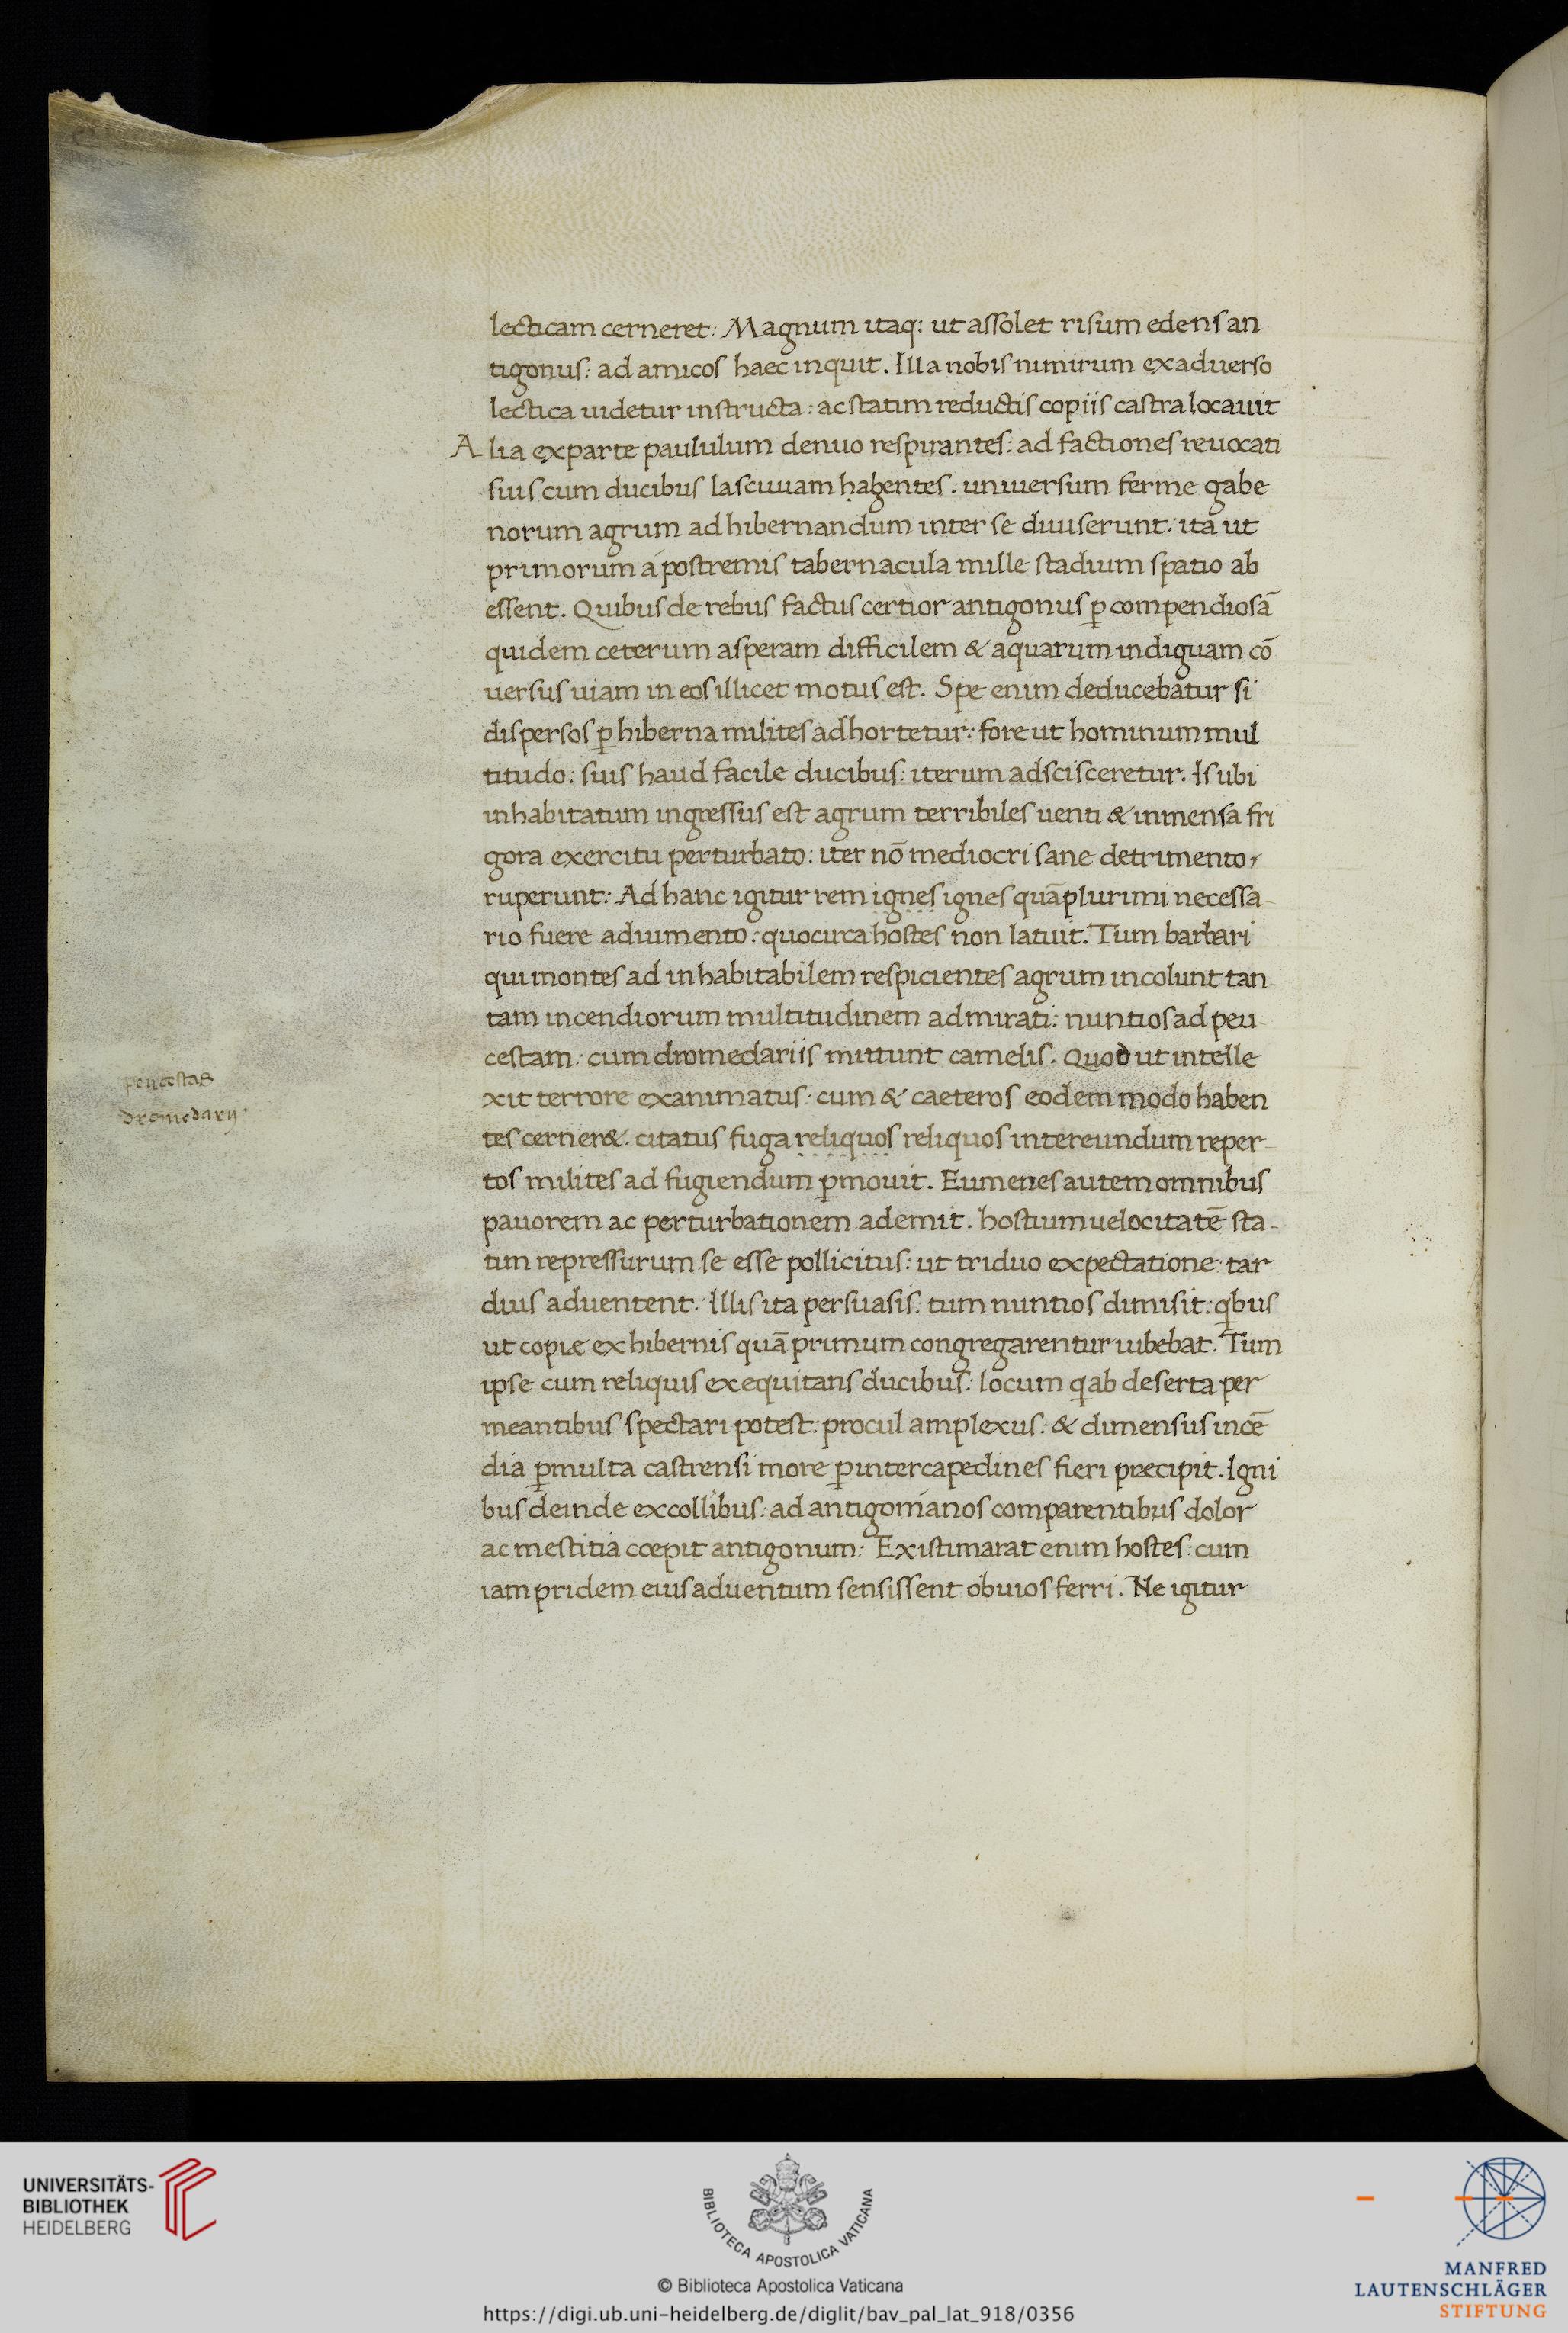 lecticam cerneret: Magnum itaq: ut assolet risum edens an
tigonus: ad amicos haec inquit. Illa nobis nimirum ex aduerso
lectica uidetur instructa: ac statim reductis copiis castra locauit
Alia ex parte paululum denuo respirantes: ad factiones reuocati
suis cum ducibus lasciuiam habentes. uniuersum ferme gabe
norum agrum ad hibernandum inter se diuiserunt: ita ut
primorum a postremis tabernacula mille stadium spatio ab
essent. Quibus de rebus factus certior antigonus ꝑ compendiosā
quidem ceterum asperam difficilem & aquarum indiguam cō
uersus uiam in eos illicet motus est. Spe enim deducebatur si
dispersos ꝑ hiberna milites adhortetur: fore ut hominum mul
titudo: suis haud facile ducibus: iterum adscisceretur. Is ubi
inhabitatum ingressus est agrum terribiles uenti & inmensa fri
gora exercitu perturbato: iter nō mediocri sane detrimento,
ruperunt: Ad hanc igitur rem ignes ignes quā plurimi necessa-
rio fuere adiumento: quocirca hostes non latuit. Tum barbari
qui montes ad inhabitabilem respicientes agrum incolunt tan
tam incendiorum multitudinem admirati: nuntios ad peu
cestam: cum dromedariis mittunt camelis. Quod ut intelle
xit terrore exanimatus: cum & caeteros eodem modo haben
tes cerner&. citatus fuga reliquos reliquos intereundum reper-
tos milites ad fugiendum ꝑmouit. Eumenes autem omnibus
pauorem ac perturbationem ademit. hostium uelocitatē sta-
tim repressurum se esse pollicitus: ut triduo expectatione tar
dius aduentent. Illis ita persuasis: tum nuntios dimisit: qbus
ut copię ex hibernis quā primum congregarentur iubebat. Tum
ipse cum reliquis exequitans ducibus: locum q ab deserta per
meantibus spectari potest: procul amplexus: & dimensus incē
dia ꝑmulta castrensi more ꝑ intercapedines fieri precipit. Igni
bus deinde ex collibus: ad antigonianos comparentibus dolor
ac mestitia cœpit antigonum: Existimarat enim hostes: cum
iam pridem eius aduentum sensissent obuios ferri. Ne igitur
peucestas
dromedarij
UNIVERSITÄTS-
BIBLIOTHEK
HEIDELBERG
BIBLIOTECA APOSTOLICA VATICANA
© Biblioteca Apostolica Vaticana
https://digi.ub.uni-heidelberg.de/diglit/bav_pal_lat_918/0356
MANFRED
LAUTENSCHLÄGER
STIFTUNG